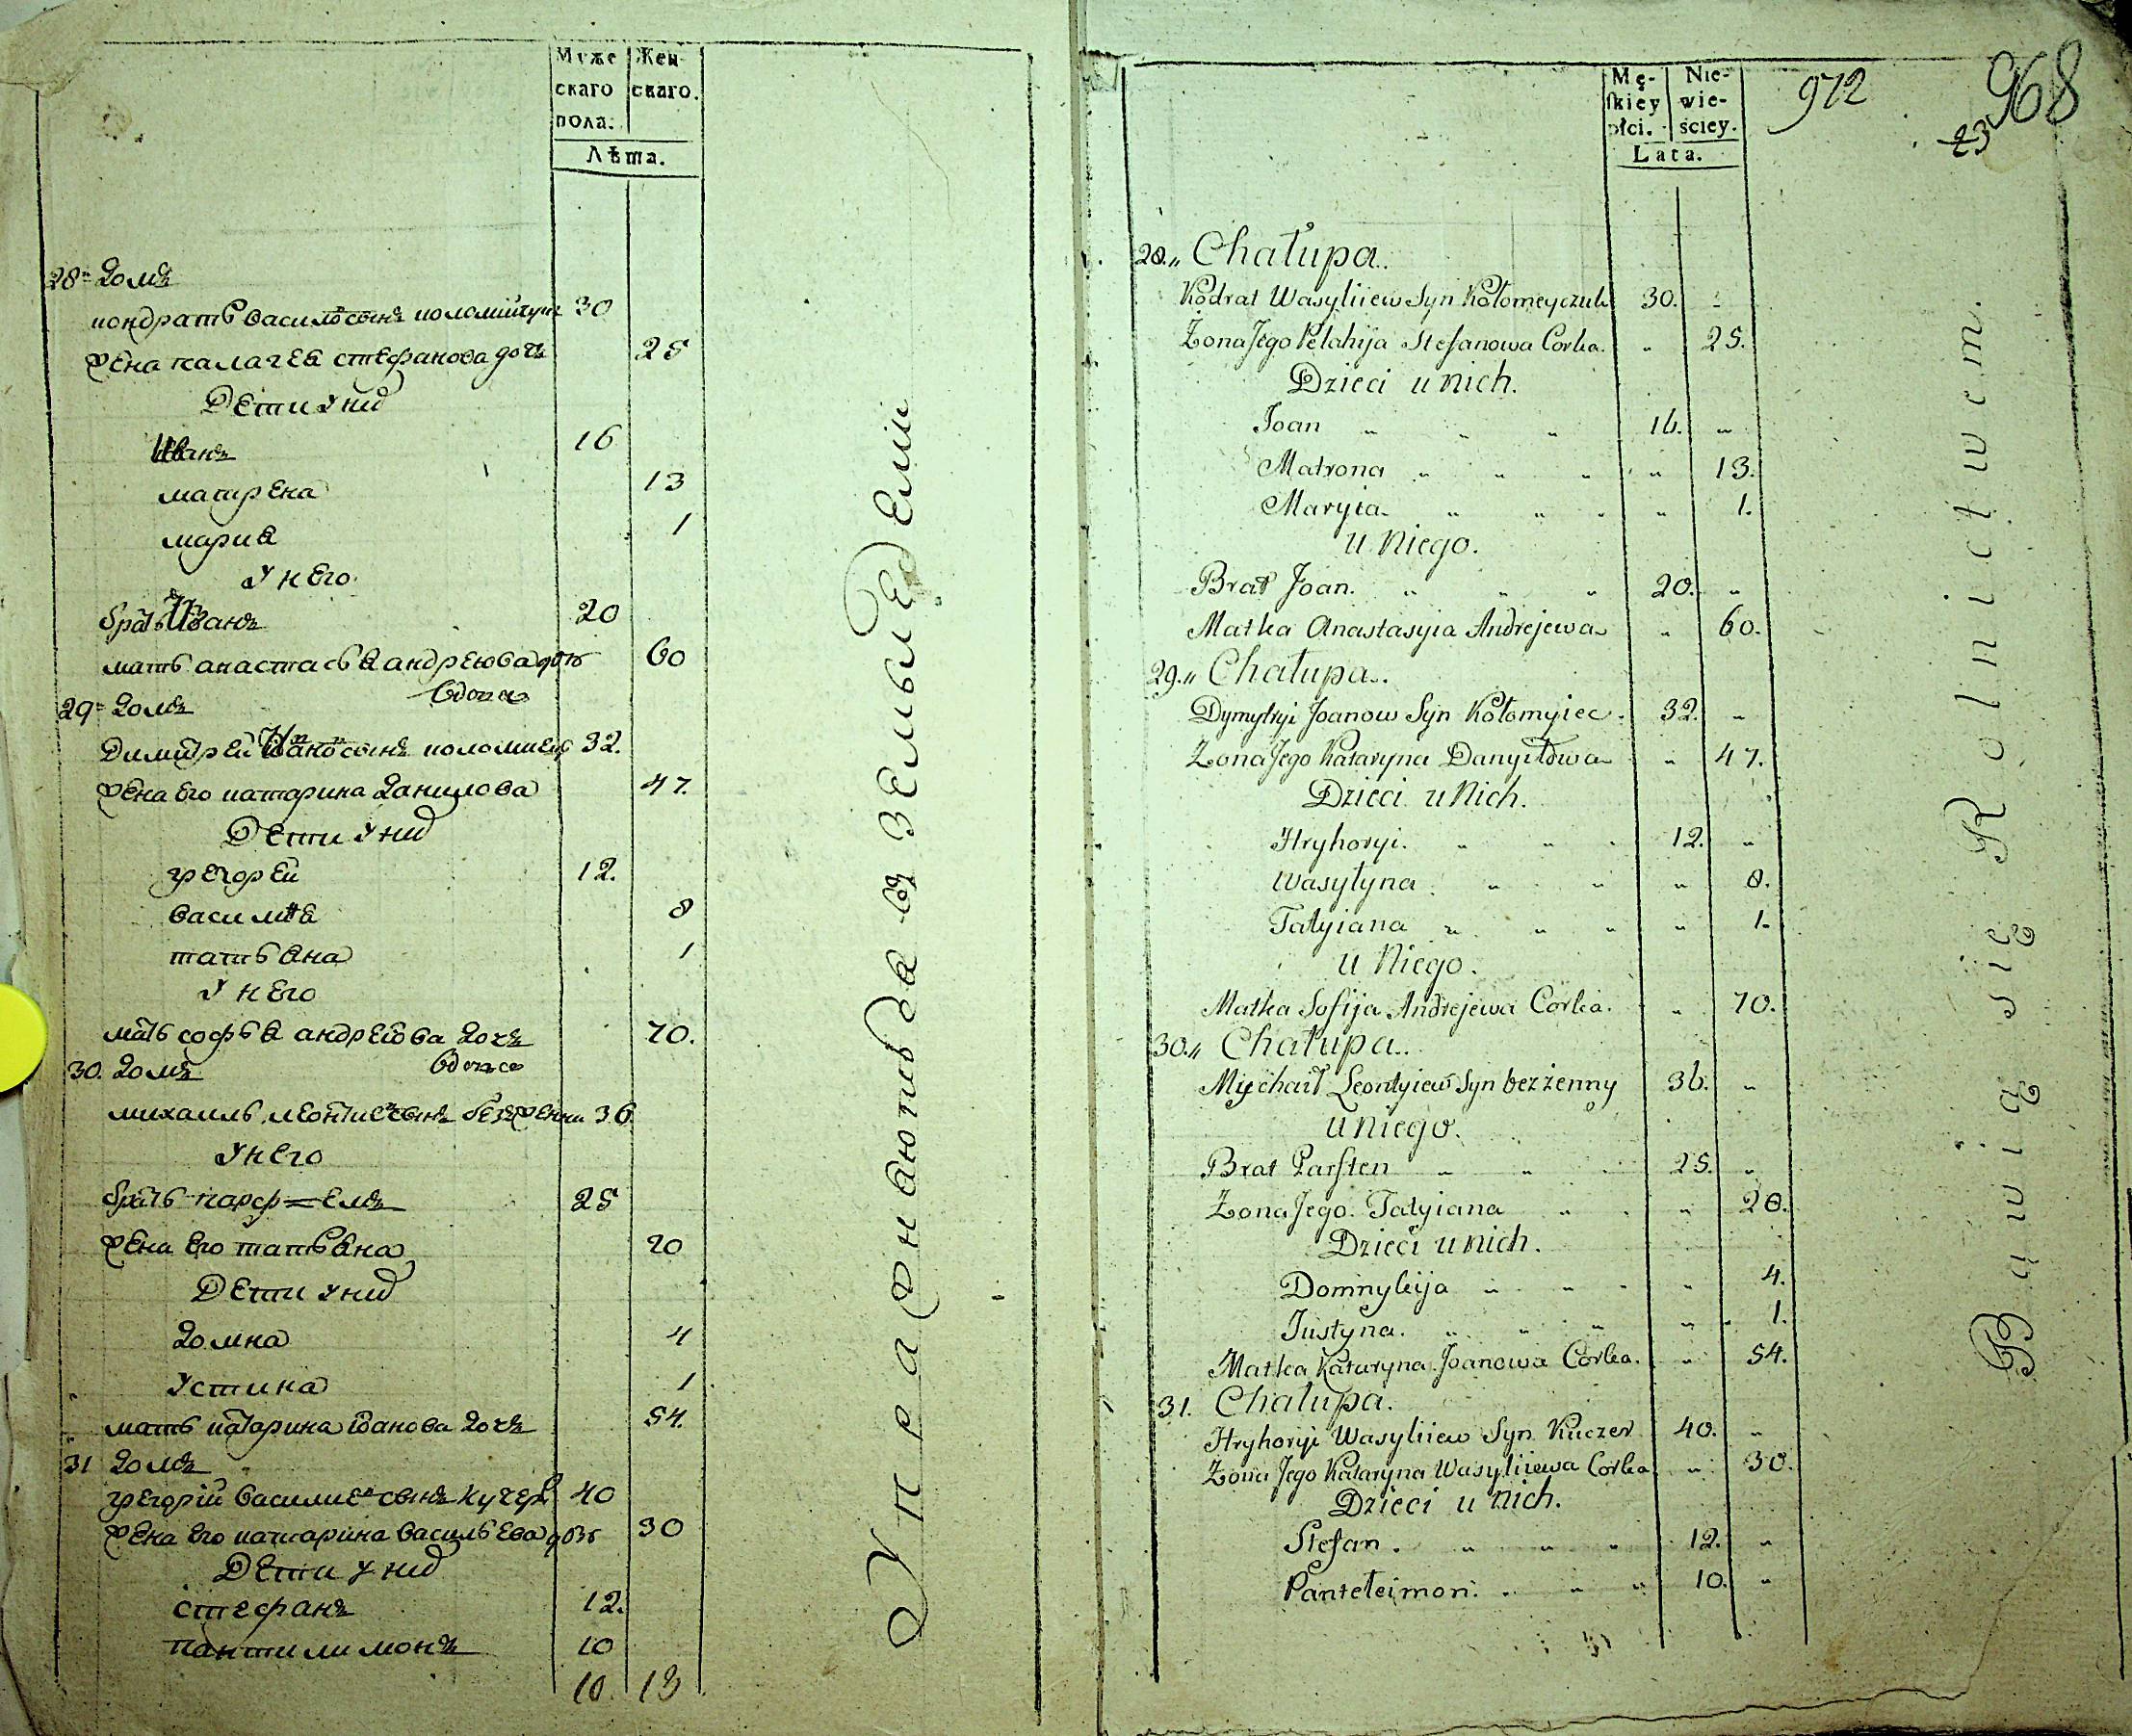 Муже
скаго
пола.
Жен-
скаго.
Лѣта.
28 домъ
кондратъ василевъ сынъ коломийчукъ 30
жена палагея стефанова дочь 25
Дети у них
Иванъ 16
матрена 13
мария 1
у него
братъ Иванъ 20
мать анастасья андреюва дочь 60
вдова
29 домъ
Димитрей Ивановъ сынъ коломиецъ 32.
жена его катарина данилова 47.
Дети у них
григорей 12.
8
татьяна 1
у него
мать софья андреева дочь 70.
вдова
30. домъ
михаилъ леонтиевъ сынъ безженни 36
у него
братъ 25
жена его татьяна 20
Дети у них
домна 4
устина 1
мать катарина іванова дочь 54.
31 домъ
григорій василиевъ сынъ кучеръ 40
жена его катарина васильева дочь 30
Дети у них
стефанъ 12.
пантилимонъ 10
10. 13
Упражняются в земледелии
Mę-
skiey
płci.
Nie-
wie-
sciey.
Lata.
972
968
23
28.,, Chałupa.
Kodrat Wasyliiew Syn Kołomeyczuk 30. "
Żona Jego Pelahija Stefanowa Corka. " 25.
Dzieci u Nich.
Joan " " " 16. "
Matrona " " " " 13.
Maryia " " " " 1.
u Niego.
Brat Joan. " " " 20. "
Matka Anastasyia Andrejewa " 60.
29.,, Chałupa.
Dymytryi Joanow Syn Kołomyiec. 32. "
Żona Jego Kataryna Danyiłowa " 47.
Dzieci u Nich.
Hryhoryi. " " " 12. "
Wasylyna. " " " 8.
Tatyiana " " " " 1.
u Niego.
Matka Sofija Andrejewa Corka. " 70.
30.,, Chałupa.
Mychaił Leontyiew Syn bezżenny 36. "
u niego.
Brat Parften " " 25. "
Żona Jego Tatyiana " " " 20.
Dzieci u nich.
Domnykija " " " " 4.
Justyna. " " " " 1.
Matka Kataryna Joanowa Corka. " 54.
31. Chałupa.
Hryhoryi Wasyliiew Syn Kuczer 40. "
Żona Jego Kataryna Wasyliiewa Corka " 30.
Dzieci u Nich.
Stefan. " " " 12. "
Panteleimon. " " " 10. "
Bawią się Rolnictwem.